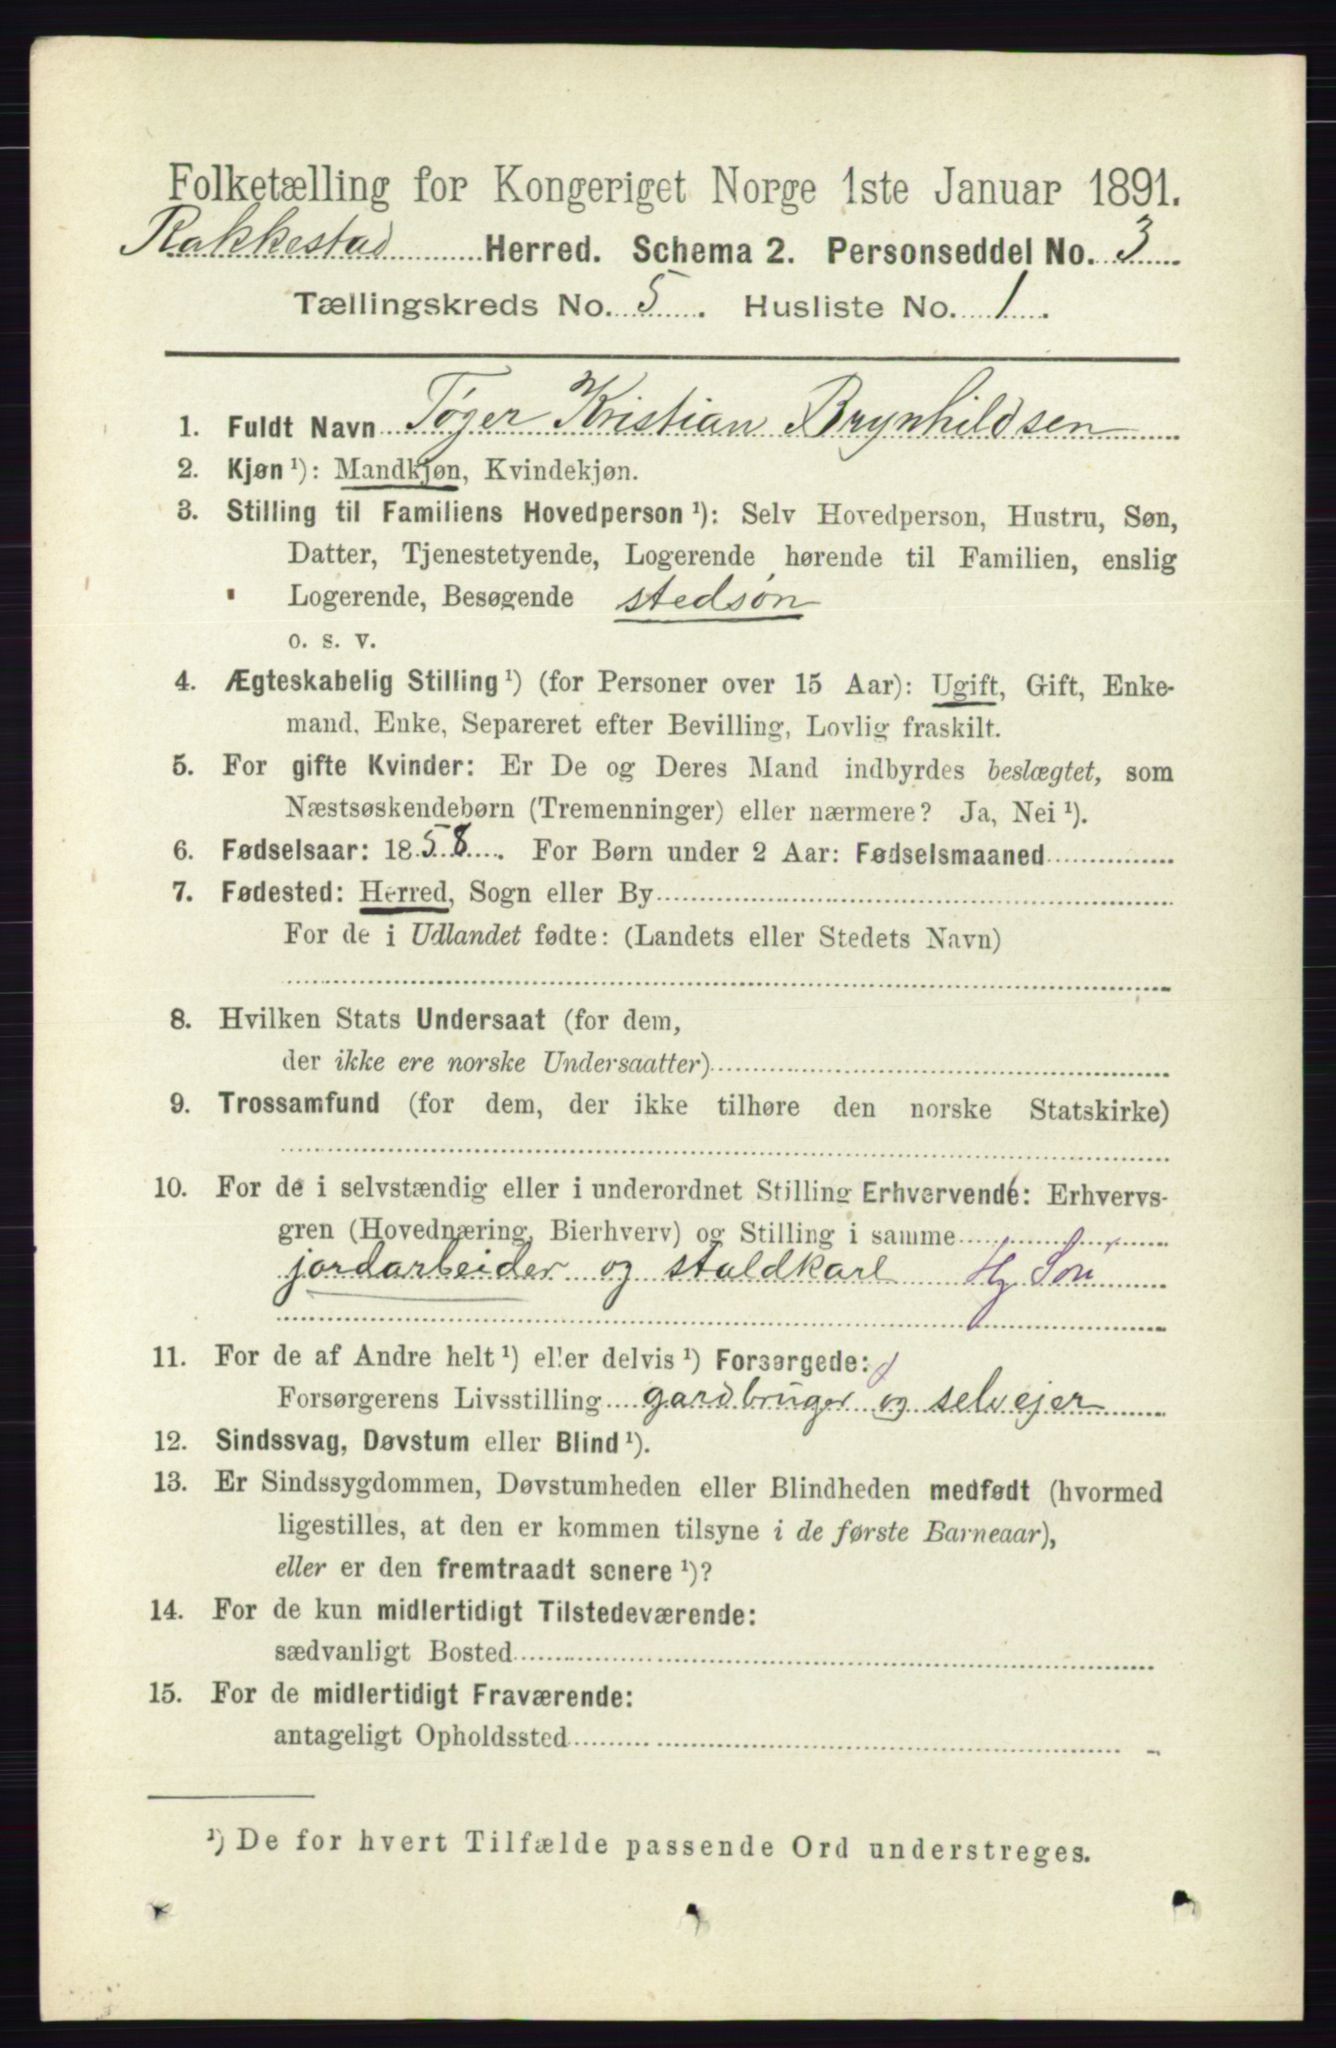 Folketælling for Kongeriget Norge 1ste Januar 1891.
Rakkestad Herred. Schema 2. Personseddel No. 3
Tællingskreds No. 5. Husliste No. 1.
1. Fuldt Navn Tøger Kristian Brynhildsen
2. Kjøn ¹): Mandkjøn, Kvindekjøn.
3. Stilling til Familiens Hovedperson ¹): Selv Hovedperson, Hustru, Søn,
Datter, Tjenestetyende, Logerende hørende til Familien, enslig
Logerende, Besøgende stedsøn
o. s. v.
4. Ægteskabelig Stilling ¹) (for Personer over 15 Aar): Ugift, Gift, Enke-
mand, Enke, Separeret efter Bevilling, Lovlig fraskilt.
5. For gifte Kvinder: Er De og Deres Mand indbyrdes beslægtet, som
Næstsøskendebørn (Tremenninger) eller nærmere? Ja, Nei ¹).
6. Fødselsaar: 1858. For Børn under 2 Aar: Fødselsmaaned
7. Fødested: Herred, Sogn eller By
For de i Udlandet fødte: (Landets eller Stedets Navn)
8. Hvilken Stats Undersaat (for dem,
der ikke ere norske Undersaatter)
9. Trossamfund (for dem, der ikke tilhøre den norske Statskirke)
10. For de i selvstændig eller i underordnet Stilling Erhvervende: Erhvervs-
gren (Hovednæring, Bierhverv) og Stilling i samme
jordarbeider og staldkarl Hg Søn
11. For de af Andre helt ¹) eller delvis ¹) Forsørgede:
Forsørgerens Livsstilling gardbruger og selvejer
12. Sindssvag, Døvstum eller Blind ¹).
13. Er Sindssygdommen, Døvstumheden eller Blindheden medfødt (hvormed
ligestilles, at den er kommen tilsyne i de første Barneaar),
eller er den fremtraadt senere ¹)?
14. For de kun midlertidigt Tilstedeværende:
sædvanligt Bosted
15. For de midlertidigt Fraværende:
antageligt Opholdssted
¹) De for hvert Tilfælde passende Ord understreges.